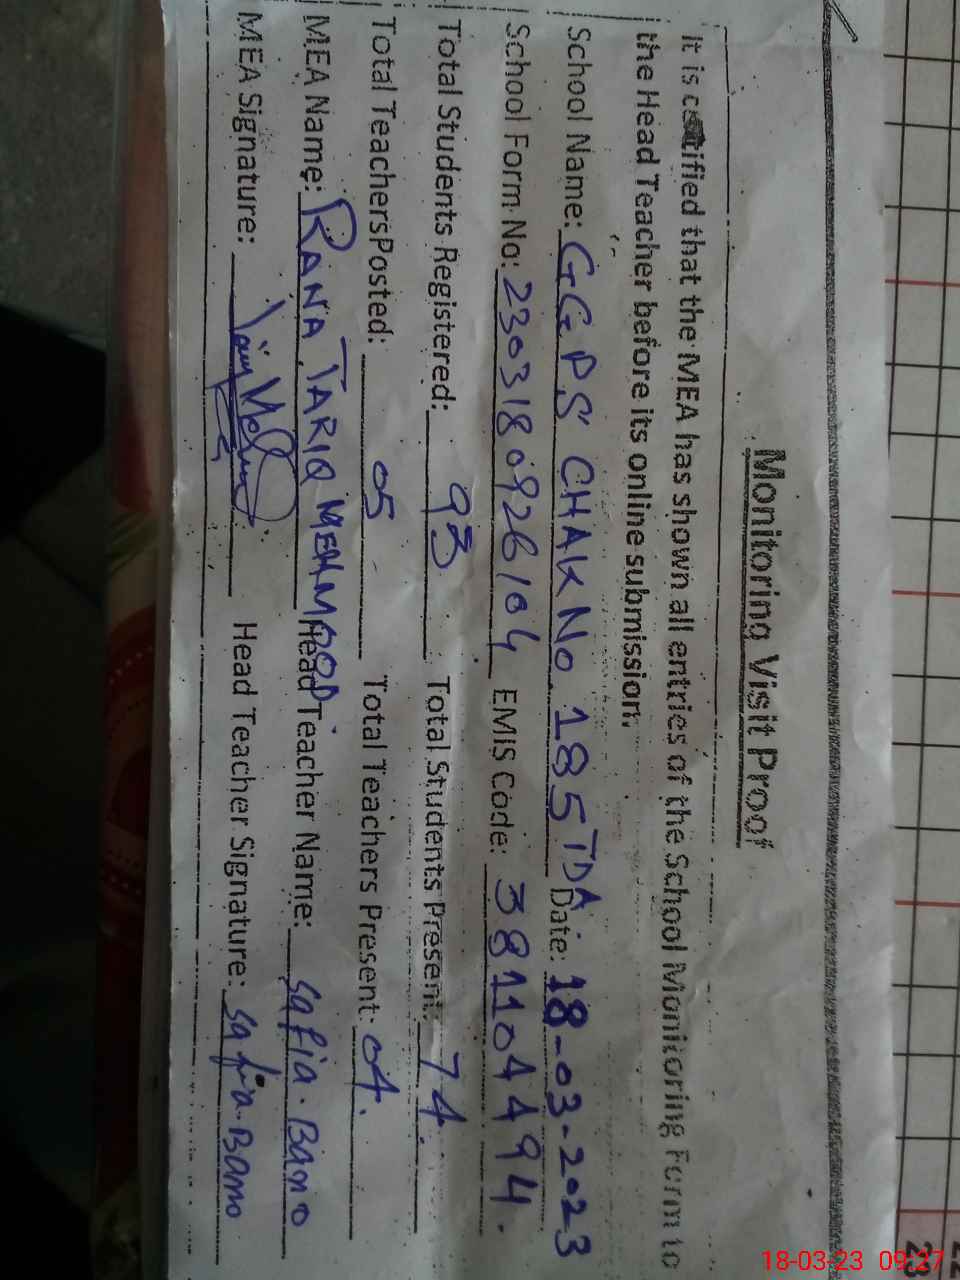 Monitoring Visit Proof
It is certified that the MEA has shown all entries of the School Monitoring Form to
the Head Teacher before its online submission.
School Name: GGPS CHAK No. 185 TDA Date: 18-03-2023
School Form No: 2303180926104 EMIS Code: 38110494.
Total Students Registered: 93 Total Students Present: 74.
Total TeachersPosted: 05 Total Teachers Present: 04.
MEA Name: RANA TARIQ MEHMOOD Head Teacher Name: Safia. Bano
MEA Signature: Head Teacher Signature: Safia. Bano
22
23
18-03-23 09:27